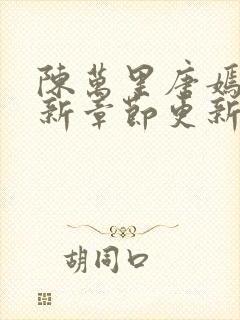 陳萬里唐嫣
新章節更新
胡同口